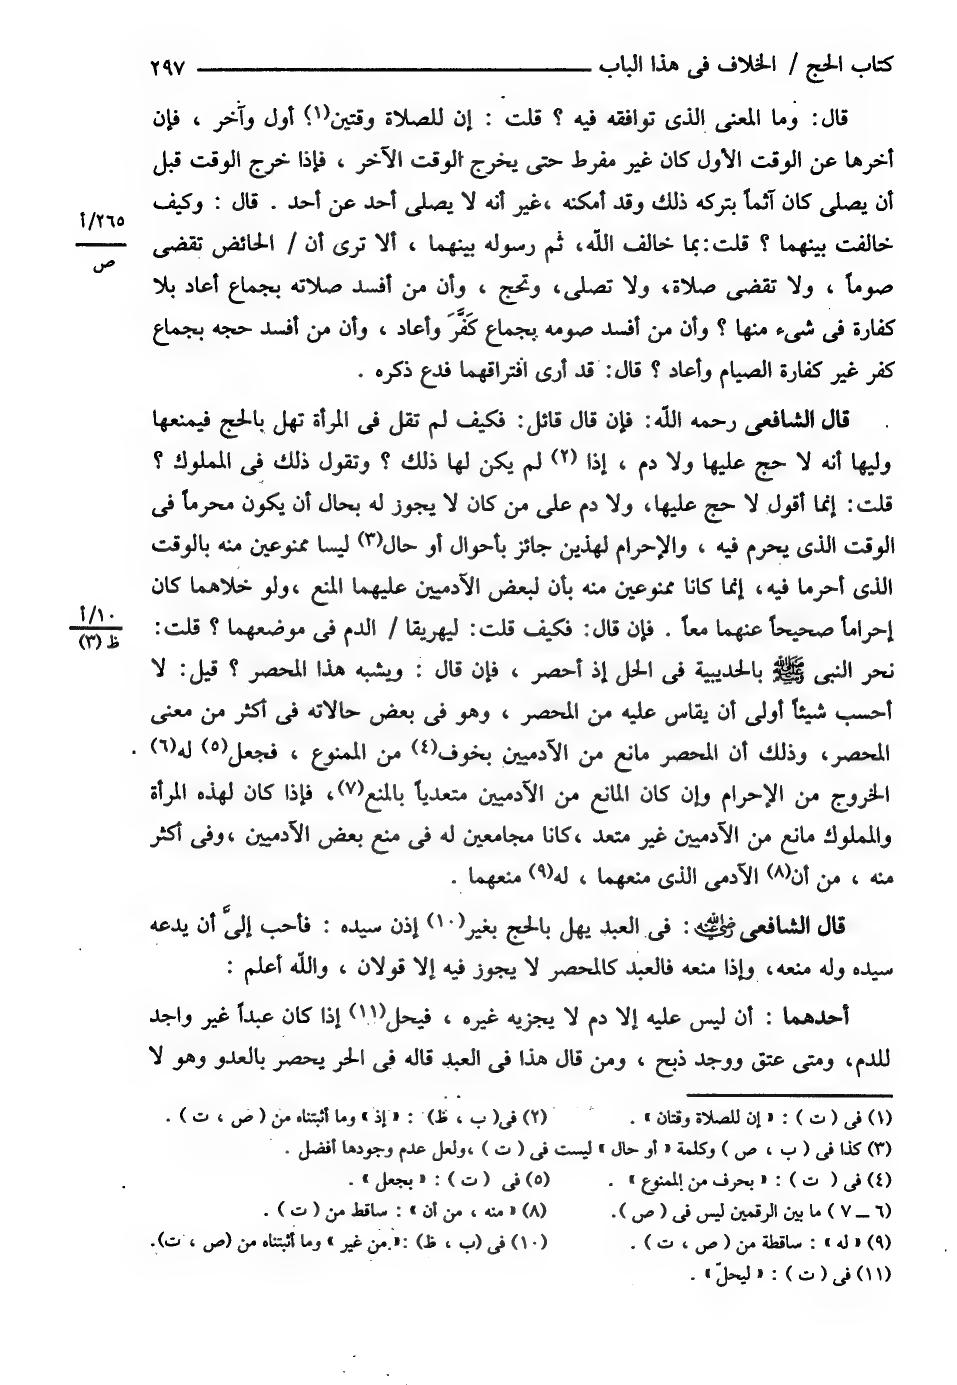 كتاب الحج / الخلاف فى هذا الباب ٢٩٧
قال: وما المعنى الذى توافقه فيه ؟ قلت : إن للصلاة وقتين(١)؟ أول وآخر ، فإن
أخرها عن الوقت الأول كان غير مفرط حتى يخرج الوقت الآخر ، فإذا خرج الوقت قبل
أن يصلى كان آثماً بتركه ذلك وقد أمكنه ،غير أنه لا يصلى أحد عن أحد . قال : وكيف
٢٦٥/أ
ص
خالفت بينهما ؟ قلت:بما خالف الله، ثم رسوله بينهما ، ألا ترى أن / الحائض تقضى
صوماً ، ولا تقضى صلاة، ولا تصلى، وتحج ، وأن من أفسد صلاته بجماع أعاد بلا
كفارة فى شىء منها ؟ وأن من أفسد صومه بجماع كَفَّرَ وأعاد ، وأن من أفسد حجه بجماع
كفر غير كفارة الصيام وأعاد ؟ قال: قد أرى افتراقهما فدع ذكره .
قال الشافعى رحمه الله: فإن قال قائل: فكيف لم تقل فى المرأة تهل بالحج فيمنعها
وليها أنه لا حج عليها ولا دم ، إذا (٢) لم يكن لها ذلك ؟ وتقول ذلك فى المملوك ؟
قلت: إنما أقول لا حج عليها، ولا دم على من كان لا يجوز له بحال أن يكون محرماً فى
الوقت الذى يحرم فيه ، والإحرام لهذين جائز بأحوال أو حال(٣) ليسا ممنوعين منه بالوقت
الذى أحرما فيه، إنما كانا ممنوعين منه بأن لبعض الآدميين عليهما المنع ،ولو خلاهما كان
١٠/أ
ظ (٣)
إحراماً صحيحاً عنهما معاً . فإن قال: فكيف قلت: ليهريقا / الدم فى موضعهما ؟ قلت:
نحر النبى ﷺ بالحديبية فى الحل إذ أحصر ، فإن قال : ويشبه هذا المحصر ؟ قيل: لا
أحسب شيئاً أولى أن يقاس عليه من المحصر ، وهو فى بعض حالاته فى أكثر من معنى
المحصر، وذلك أن المحصر مانع من الآدميين بخوف(٤) من الممنوع ، فجعل(٥) له(٦)
الخروج من الإحرام وإن كان المانع من الآدميين متعدياً بالمنع(٧)، فإذا كان لهذه المرأة
والمملوك مانع من الآدميين غير متعد ،كانا مجامعين له فى منع بعض الآدميين ،وفى أكثر
منه ، من أن(٨) الآدمى الذى منعهما ، له(٩) منعهما .
قال الشافعى رضي الله عنه: فى العبد يهل بالحج بغير(١٠) إذن سيده : فأحب إلىَّ أن يدعه
سيده وله منعه، وإذا منعه فالعبد كالمحصر لا يجوز فيه إلا قولان ، والله أعلم :
أحدهما : أن ليس عليه إلا دم لا يجزيه غيره ، فيحل(١١) إذا كان عبداً غير واجد
للدم، ومتى عتق ووجد ذبح ، ومن قال هذا فى العبد قاله فى الحر يحصر بالعدو وهو لا
(١) فى ( ت ) : « إن للصلاة وقتان » . (٢) فى( ب ، ظ) : « إذ » وما أثبتناه من ( ص ، ت ) .
(٣) كذا فى ( ب ، ص ) وكلمة « أو حال » ليست فى ( ت ) ،ولعل عدم وجودها أفضل .
(٤) فى ( ت ) : « بحرف من الممنوع » . (٥) فى ( ت ) : « بجعل » .
(٦ ــ ٧ ) ما بين الرقمين ليس فى ( ص ). (٨) « منه ، من أن » : ساقط من ( ت ) .
(٩) « له » : ساقطة من ( ص ، ت ) . (١٠) فى (ب ، ظ) :« من غير » وما أثبتناه من (ص ، ت).
(١١) فى ( ت ) : « ليحلّ » .